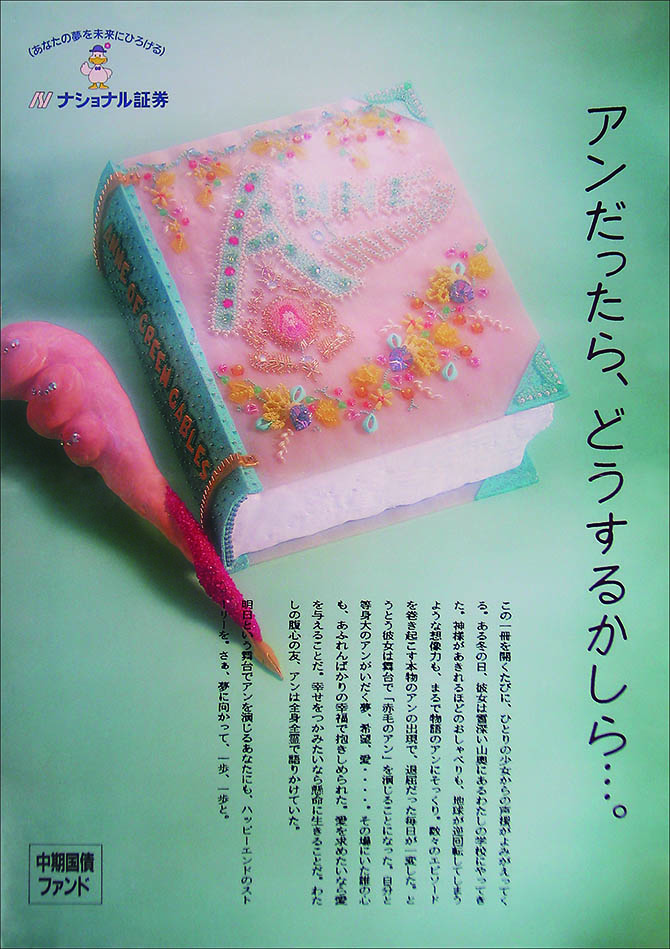 (あなたの夢を未来にひろげる)
ナショナル証券
アンだったら、どうするかしら…。
ANNE
ANNE OF GREEN GABLES
この一冊を開くたびに、ひとりの少女からの声援がよみがえってく
る。ある冬の日、彼女は雪深い山奥にあるわたしの学校にやってき
た。神様があきれるほどのおしゃべりも、地球が逆回転してしまう
ような想像力も、まるで物語のアンにそっくり。数々のエピソード
を巻き起こす本物のアンの出現で、退屈だった毎日が一変した。と
うとう彼女は舞台で「赤毛のアン」を演じることになった。自分と
等身大のアンがいだく夢、希望、愛・・・・。その場にいた誰の心
も、あふれんばかりの幸福で抱きしめられた。愛を求めたいなら愛
を与えることだ。幸せをつかみたいなら懸命に生きることだ。わた
しの腹心の友、アンは全身全霊で語りかけていた。
明日という舞台でアンを演じるあなたにも、ハッピーエンドのスト
ーリーを。さぁ、夢に向かって、一歩、一歩と。
中期国債
ファンド